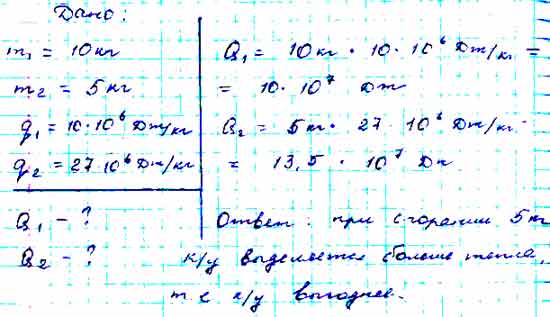 Дано:
m₁ = 10 кг
m₂ = 5 кг
q₁ = 10·10⁶ Дж/кг
q₂ = 27·10⁶ Дж/кг
Q₁ - ?
Q₂ - ?
Q₁ = 10кг · 10·10⁶ Дж/кг =
= 10·10⁷ Дж
Q₂ = 5кг · 27·10⁶ Дж/кг
= 13,5·10⁷ Дж
Ответ: при сгорании 5 кг
к/у выделяется больше тепла,
т.е к/у выгоднее.